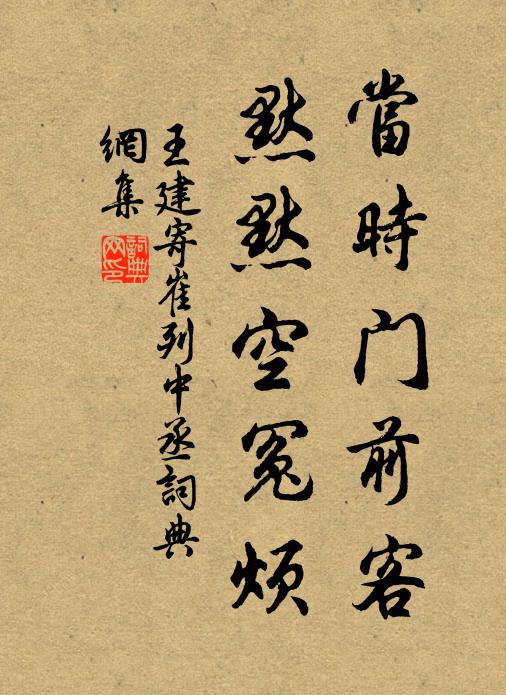 當時门前客
默默空冤煩
王建寄崔列中丞詞典
網集
詞典网印